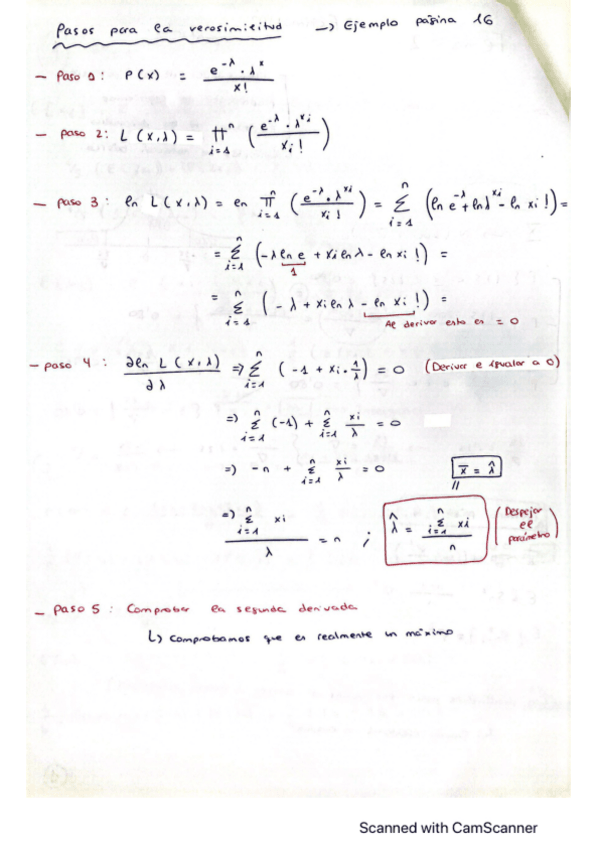 Pasos para la verosimilitud → Ejemplo página 16
- Paso 1: P(x) = e^-λ · λ^x / x!
- Paso 2: L(x,λ) = ∏ i=1 n (e^-λ · λ^xi / xi!)
- Paso 3: ln L(x,λ) = ln ∏ i=1 n (e^-λ · λ^xi / xi!) = Σ i=1 n (ln e^-λ + ln λ^xi - ln xi!) =
= Σ i=1 n (-λ ln e + xi ln λ - ln xi!) =
1
= Σ i=1 n (-λ + xi ln λ - ln xi!) =
Al derivar esto es = 0
- Paso 4: ∂ ln L(x,λ) / ∂λ => Σ i=1 n (-1 + xi · 1/λ) = 0 (Derivar e igualar a 0)
=> Σ i=1 n (-1) + Σ i=1 n xi/λ = 0
=> -n + Σ i=1 n xi/λ = 0 x̄ = λ̂
=> Σ i=1 n xi / λ = n ; λ̂ = Σ i=1 n xi / n (Despejar el parámetro)
- Paso 5: Comprobar la segunda derivada
↳ Comprobamos que es realmente un máximo
Scanned with CamScanner